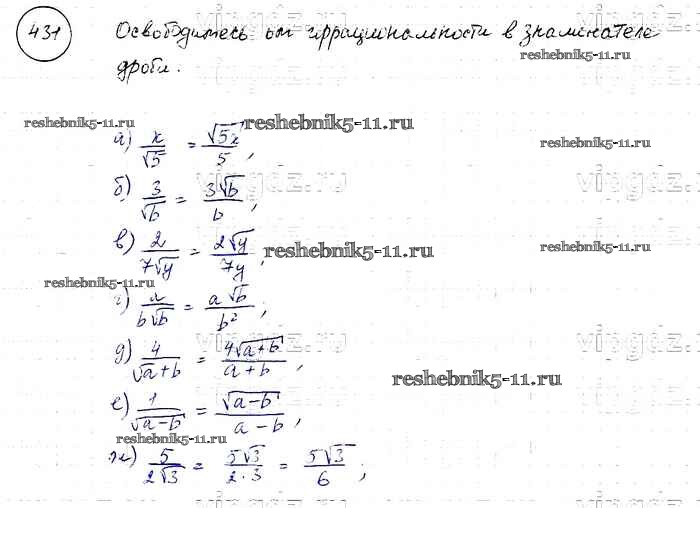 431 Освободитесь от иррациональности в знаменателе
дроби.
reshebnik5-11.ru reshebnik5-11.ru
а) x/√5 = √5x/5, reshebnik5-11.ru
б) 3/√b = 3√b/b;
в) 2/7√y = 2√y/7y, reshebnik5-11.ru reshebnik5-11.ru
reshebnik5-11.ru
г) a/b√b = a√b/b²;
д) 4/√a+b = 4√a+b/a+b,
reshebnik5-11.ru
е) 1/√a-b = √a-b/a-b,
reshebnik5-11.ru
ж) 5/2√3 = 5√3/2·3 = 5√3/6;